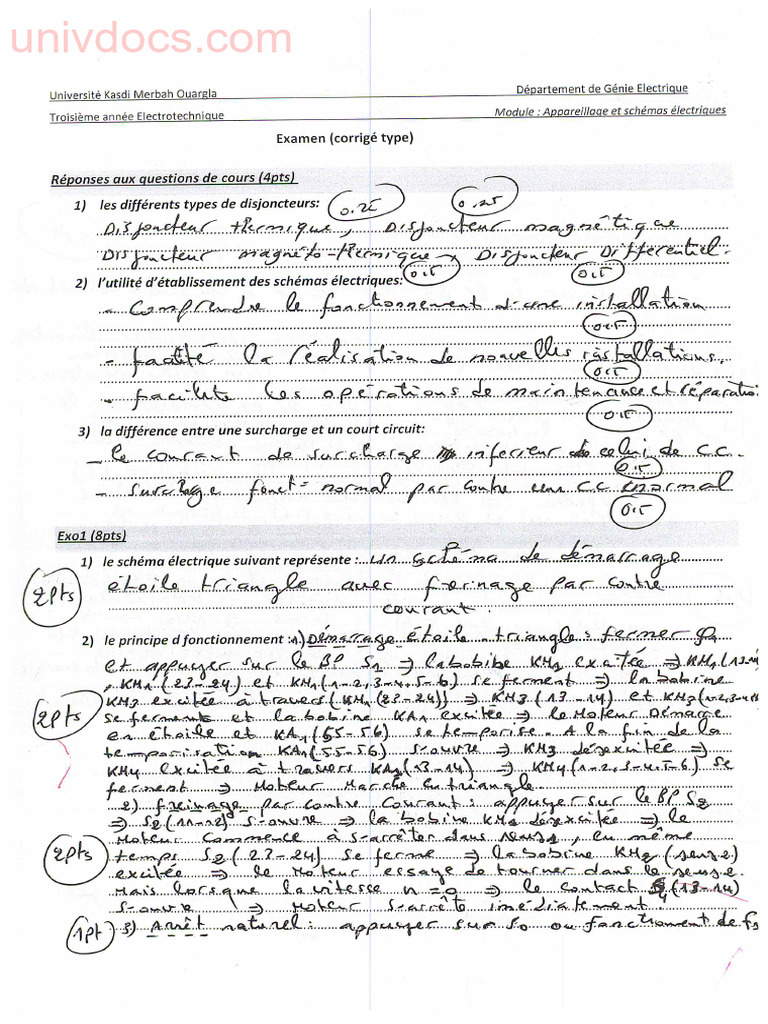 univdocs.com
Université Kasdi Merbah Ouargla
Département de Génie Electrique
Troisième année Electrotechnique
Module : Appareillage et schémas électriques
Examen (corrigé type)
Réponses aux questions de cours (4pts)
1) les différents types de disjoncteurs: 0.25 0.25
Disjoncteur thermique, Disjoncteur magnétique
Disjoncteur magnéto-thermique, Disjoncteur Differentiel.
0.5 0.5
2) l'utilité d'établissement des schémas électriques:
- Comprendre le fonctionnement d'une installation
0.5
- facilité la réalisation de nouvelles installations.
0.5
- facilite les opérations de maintenance et réparatio
0.5
3) la différence entre une surcharge et un court circuit:
- le courant de surcharge inferieur de celui de c.c.
0.5
- surchage fonct= normal par contre un c.c anormal
0.5
Exo1 (8pts)
1) le schéma électrique suivant représente : un schéma de démarrage
2pts étoile triangle avec freinage par contre
courant.
2) le principe d fonctionnement : 1) Démarrage étoile triangle : fermer Q2
et appuyer sur le BP S2 ⇒ la bobibe KM1 excitée ⇒ KM1(13-1
, KM1(23-24) et KM1(1-2,3-4,5-6) se ferment ⇒ la bobine
2pts KM3 excitée à travers (KM1(23-24)) ⇒ KM3(13-14) et KM3(1-2,3-4,5
se ferment et la bobine KA1 excitée ⇒ le Moteur Démarre
en étoile et KA1(55-56) se temporise. A la fin de la
temporisation KA1(55-56) s'ouvre ⇒ KM3 désexcitée ⇒
KM4 excitée à travers (13-14) ⇒ KM4(1-2,3-4,5-6) se
ferment ⇒ Moteur Marche en triangle
2) freinage par contre courant : appuyer sur le BP S2
⇒ S2(11-12) s'ouvre ⇒ la bobine KM1 désexcitée ⇒ le
Moteur commence à s'arrêter dans sens1, en même
2pts temps S2(23-24) se ferme ⇒ la bobine KM2 (sens2)
excitée ⇒ le Moteur essaye de tourner dans le sens2.
Mais lorsque la vitesse n=0 ⇒ le contact (13-14)
s'ouvre ⇒ Moteur s'arrête imédiatement.
1pt 3) Arrêt naturel : appuyer sur S0 ou fonctionment de F1